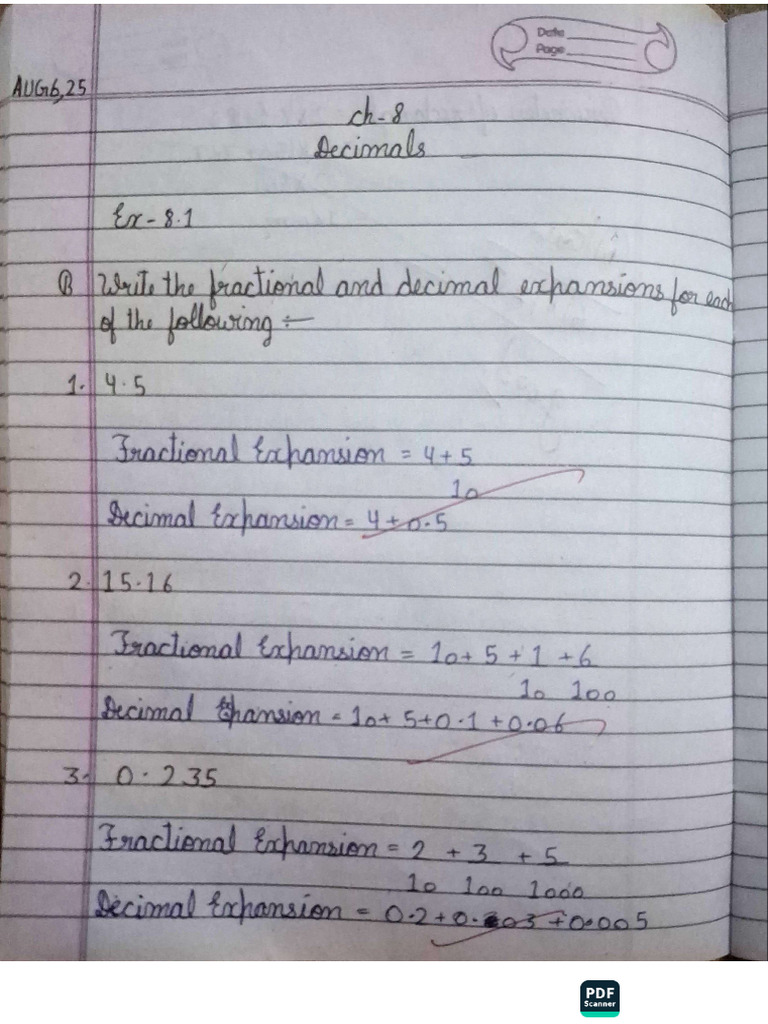 Date
Page
AUG6,25
ch-8
Decimals
Ex-8.1
B Write the fractional and decimal expansions for each
of the following :-
1. 4.5
Fractional Expansion = 4+5
10
Decimal Expansion = 4+0.5
2. 15.16
Fractional Expansion = 10+5+1+6
10 100
Decimal Expansion = 10+5+0.1+0.06
3. 0.235
Fractional Expansion = 2+3+5
10 100 1000
Decimal Expansion = 0.2+0.03+0.005
PDF
Scanner